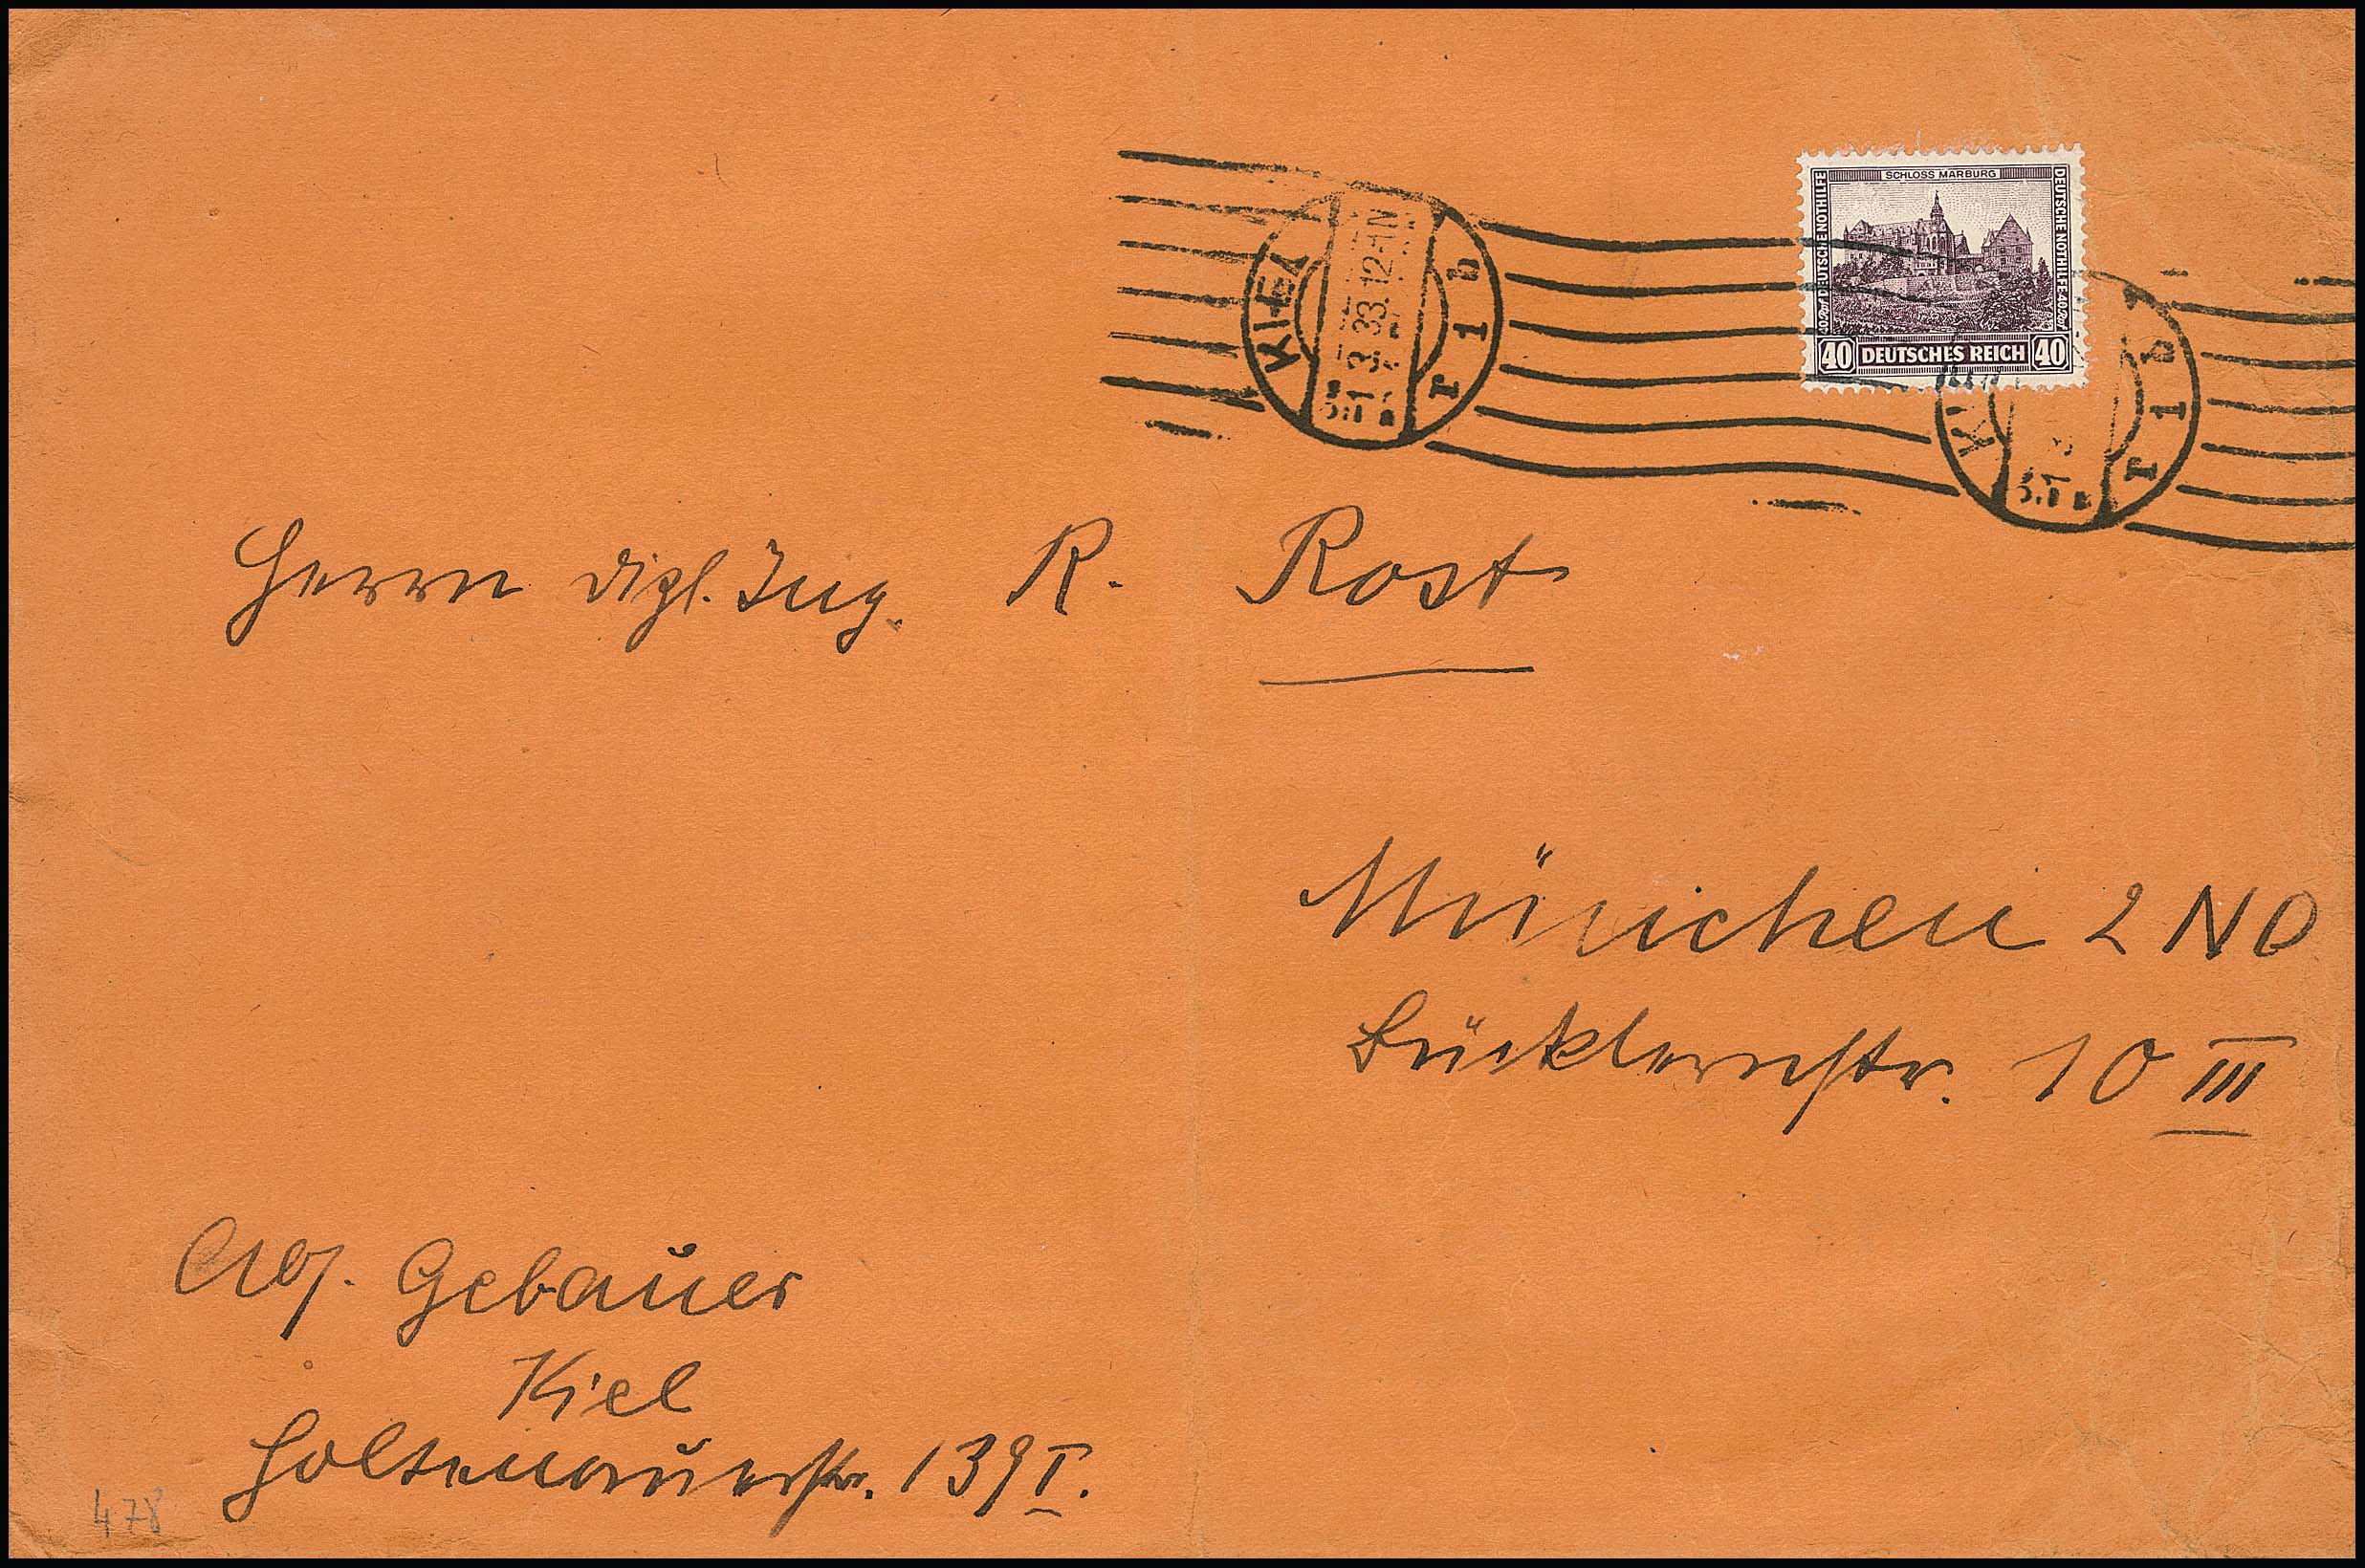 KIEL 1 b
-1.3.33.12-1N
SCHLOSS MARBURG
DEUTSCHE NOTHILFE
DEUTSCHE NOTHILFE
40 DEUTSCHES REICH 40
KI 1 b
Herrn dipl. Ing. R. Rost
München 2 NO
Bürkleinstr. 10 III
Abs. Gebauer
Kiel
Holtenauerstr. 139 I.
478